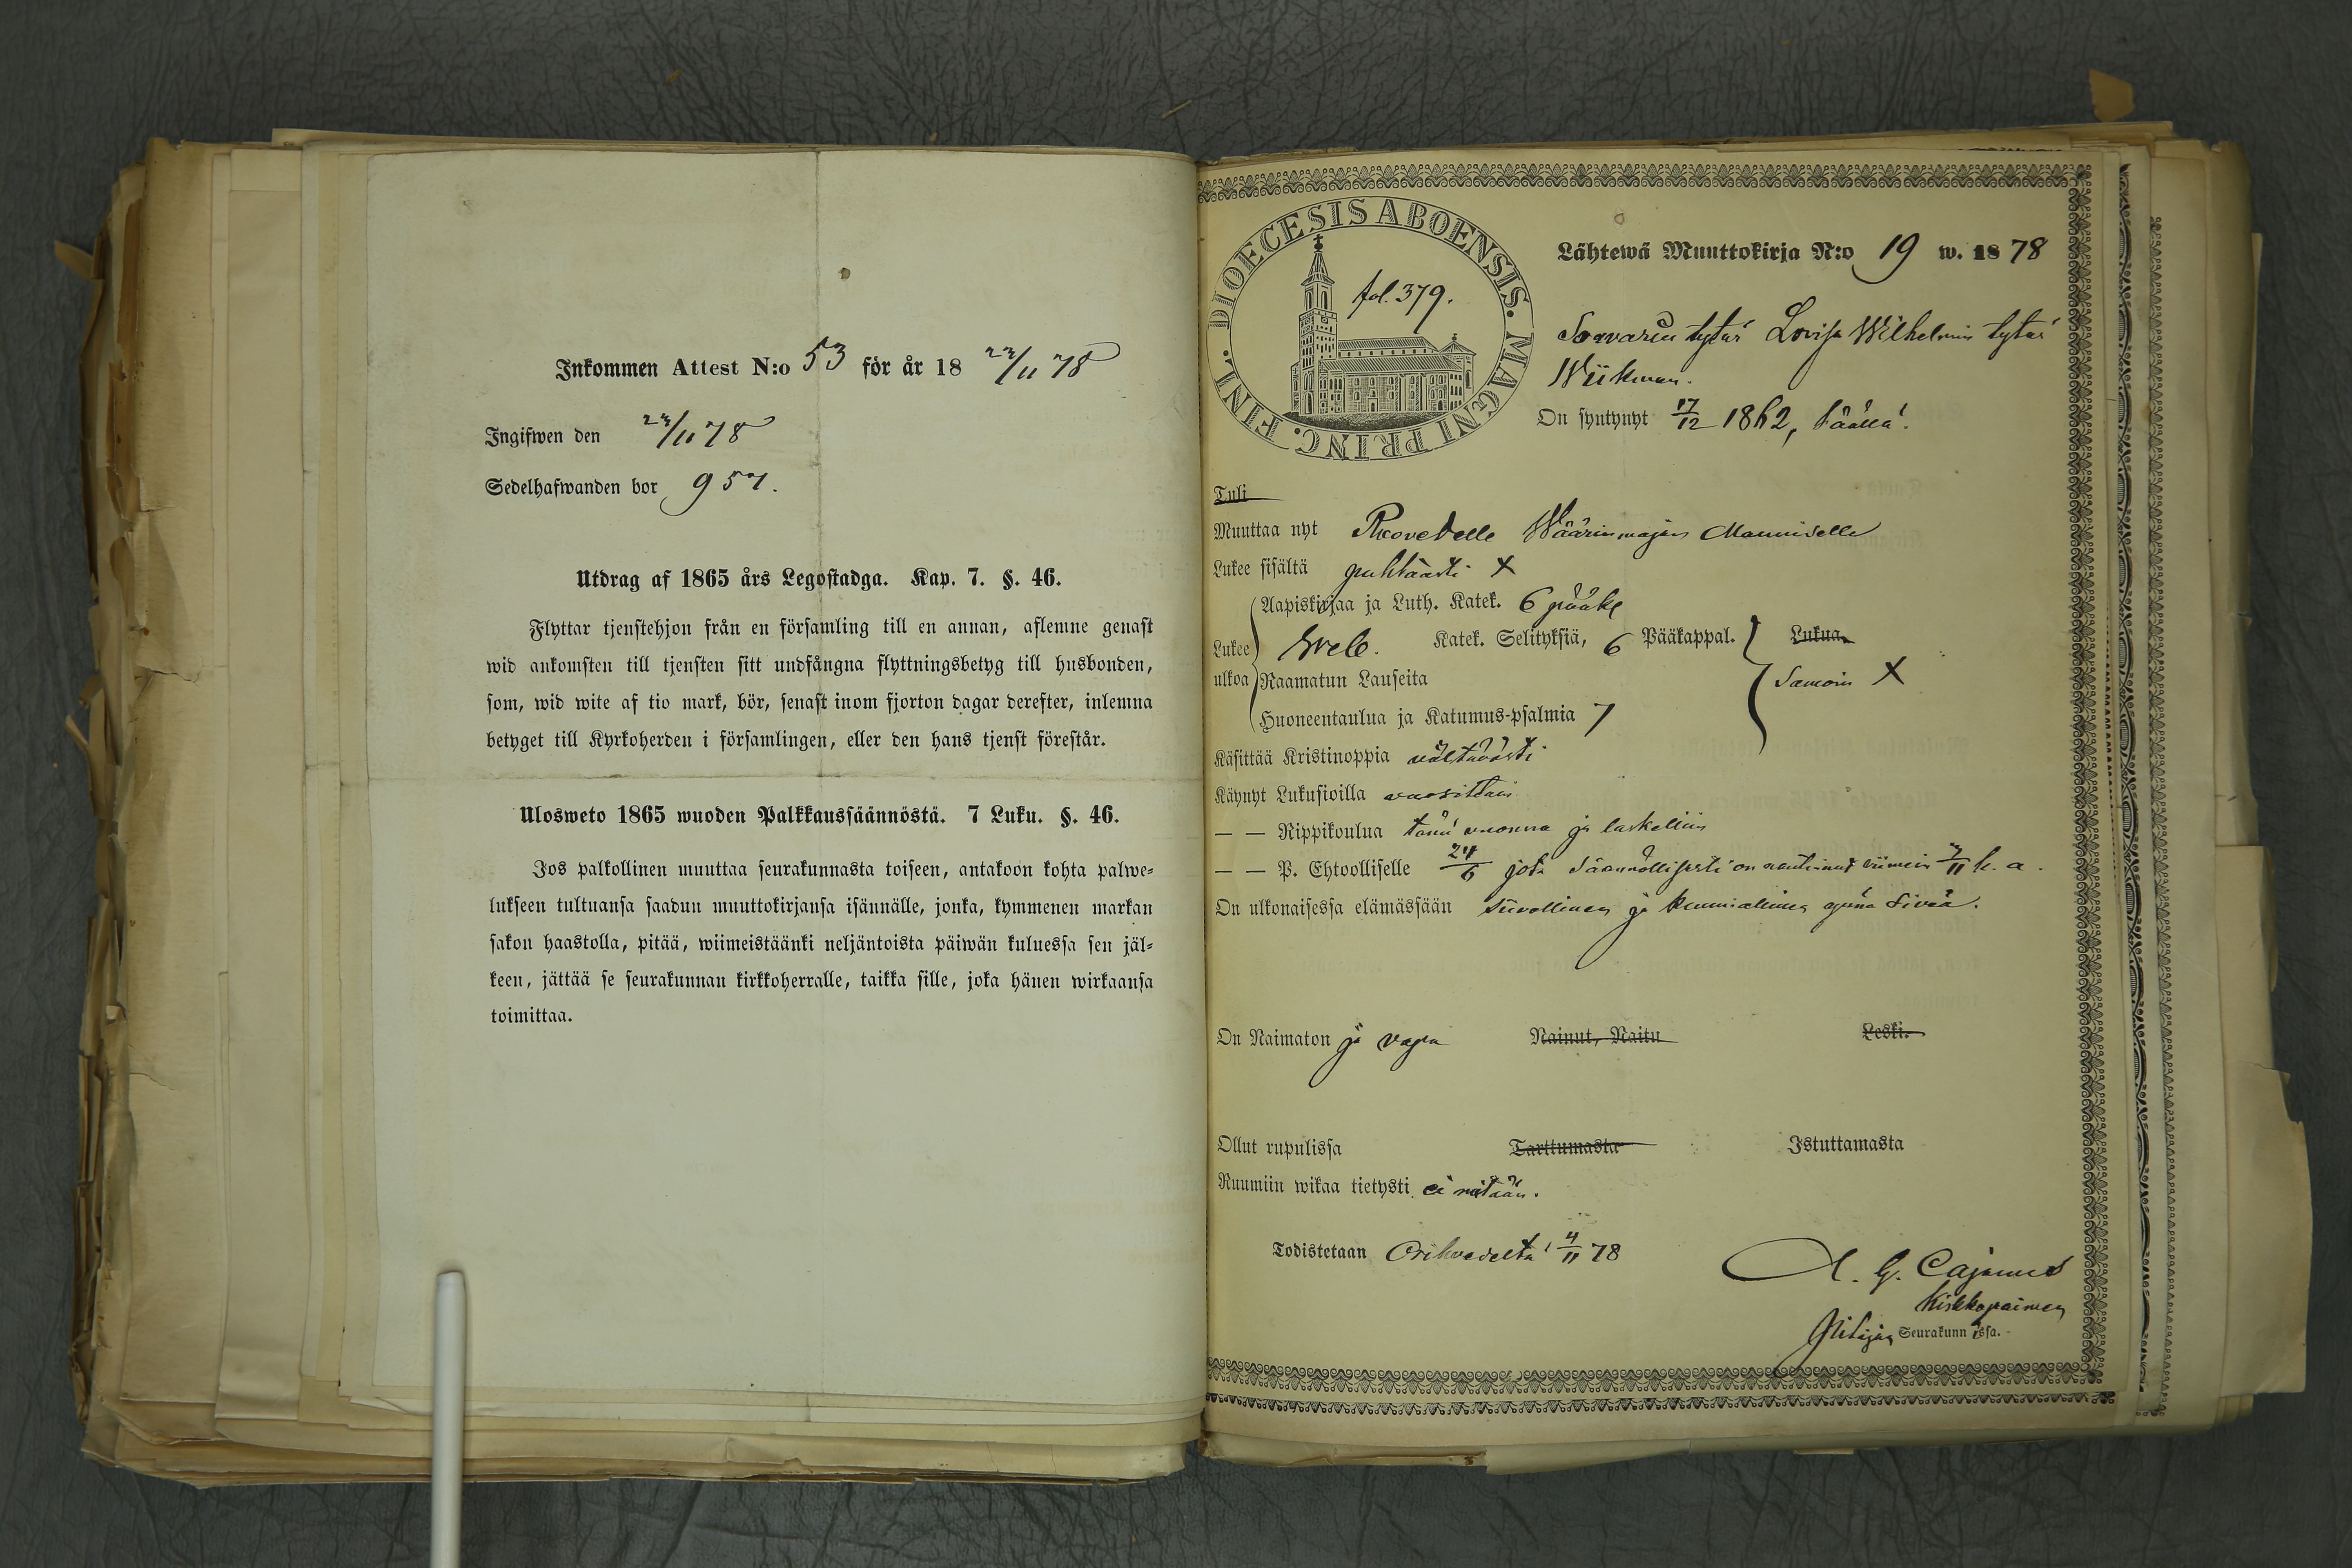 Inkommen Attest N:o 53 för år 18 23/11 78
Ingifwen den 23/11 78
Sedelhafwanden bor 957.
Utdrag af 1865 års Legostadga. Kap. 7. §. 46.
Flyttar tjenstehjon från en församling till en annan, aflemne genast
wid ankomsten till tjensten sitt undfångna flyttningsbetyg till husbonden,
som, wid wite af tio mark, bör, senast inom fjorton dagar derefter, inlemna
betyget till Kyrkoherden i församlingen, eller den hans tjenst förestår.
Ulosweto 1865 wuoden Palkkaussäännöstä. 7 Luku. §. 46.
Jos palkollinen muuttaa seurakunnasta toiseen, antakoon kohta palwe-
lukseen tultuansa saadun muuttokirjansa isännälle, jonka, kymmenen markan
sakon haastolla, pitää, wiimeistäänki neljäntoista päiwän kuluessa sen jäl-
keen, jättää se seurakunnan kirkkoherralle, taikka sille, joka hänen wirkaansa
toimittaa.
DIOECESIS ABOENSIS. MAGNI PRINC. FINL.
fol. 379.
Lähtewä Muuttokirja N:o 19 w. 1878
tytär Lovisa Wilhelmin tytär
Wiikman.
On syntynyt 17/12 1862, täällä.
Tuli
Muuttaa nyt Ruovedelle Wäärinmajan Manniselle
Lukee sisältä puhtaasti X
Aapiskirjaa ja Luth. Katek. 6 pääk
Lukee Sveb. Katek. Selityksiä, 6 Pääkappal. Lukua
ulkoa Raamatun Lauseita Samoin X
Huoneentaulua ja Katumus-psalmia 7
Käsittää Kristinoppia vältävästi
Käynyt Lukusioilla vuosittain
— — Rippikoulua tänä vuonna ja laskettiin
— — P. Ehtoolliselle 24/6 jota Säännöllisesti on nautinnut viimein /11 k. a.
On ulkonaisessa elämässään siivollinen ja kunniallinen aina siveä.
On Naimaton ja vapa Nainut, Naitu Leski.
Ollut rupulissa Tarttumasta Istuttamasta
Ruumiin wikaa tietysti ei mitään.
Todistetaan Orihvedeltä 4/11 78
A. G. Cajanus
Kirkkopaimen
Pitäjän Seurakunnissa.